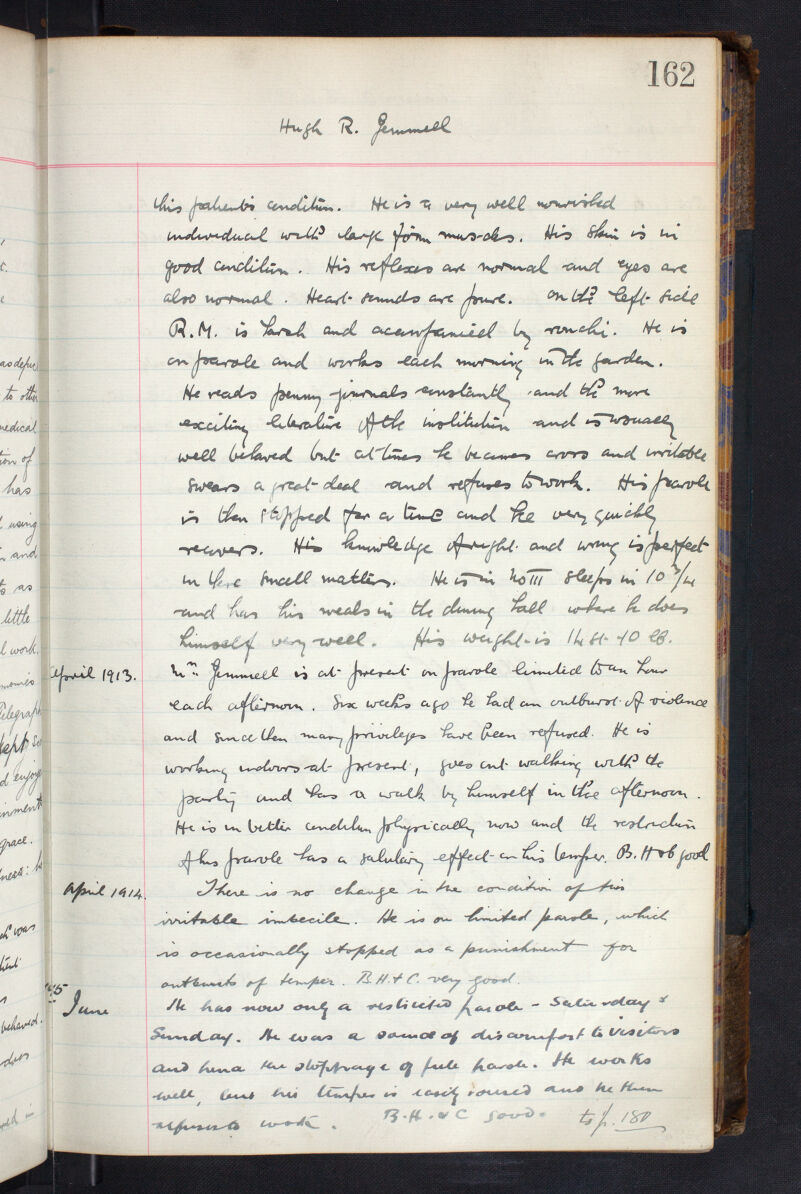 162
Hugh R. Gemmell
this patient's condition. He is a very well nourished
individual with large firm muscles. His skin is in
good condition. His reflexes are normal and eyes are
also normal. Heart sounds are pure. On the left side
R.M. is harsh and accompanied by ronchi. He is
on parole and works each morning in the garden.
He reads penny journals constantly and the more
exciting literature of the institution and is usually
well behaved but at times he becomes cross and irritable
swears a great deal and refuses to work. His parole
is then stopped for a time and he very quickly
recovers. His knowledge of right and wrong is perfect
in these small matters. He is in No III sleeps in 10 3/4
and has his meals in the dining hall where he does
himself very well. His weight is 14 st 10 lb.
April 1913. Mr Gemmell is at present on parole limited to an hour
each afternoon. Six weeks ago he had an outburst of violence
and since then many privileges have been refused. He is
working indoors at present, goes out walking with the
party and has a walk by himself in the afternoon.
He is in better condition physically now and the restriction
of his parole has a salutary effect on his temper. B.H. good
April 1914. There is no change in the condition of this
irritable imbecile. He is on limited parole, which
is occasionally stopped as a punishment for
outbursts of temper. B.H. & C. very good.
June He has now only a restricted parole - Saturday &
Sunday. He was a source of discomfort to visitors
and hence the stoppage of full parole. He works
well, but his temper is easily roused and he then
refuses to work. B.H. & C good. to p. 180
as defec
to other
medical
tion of
has
using
and
as
little
work.
Telegraph
kept so
enjoys
grace.
was
behaved.